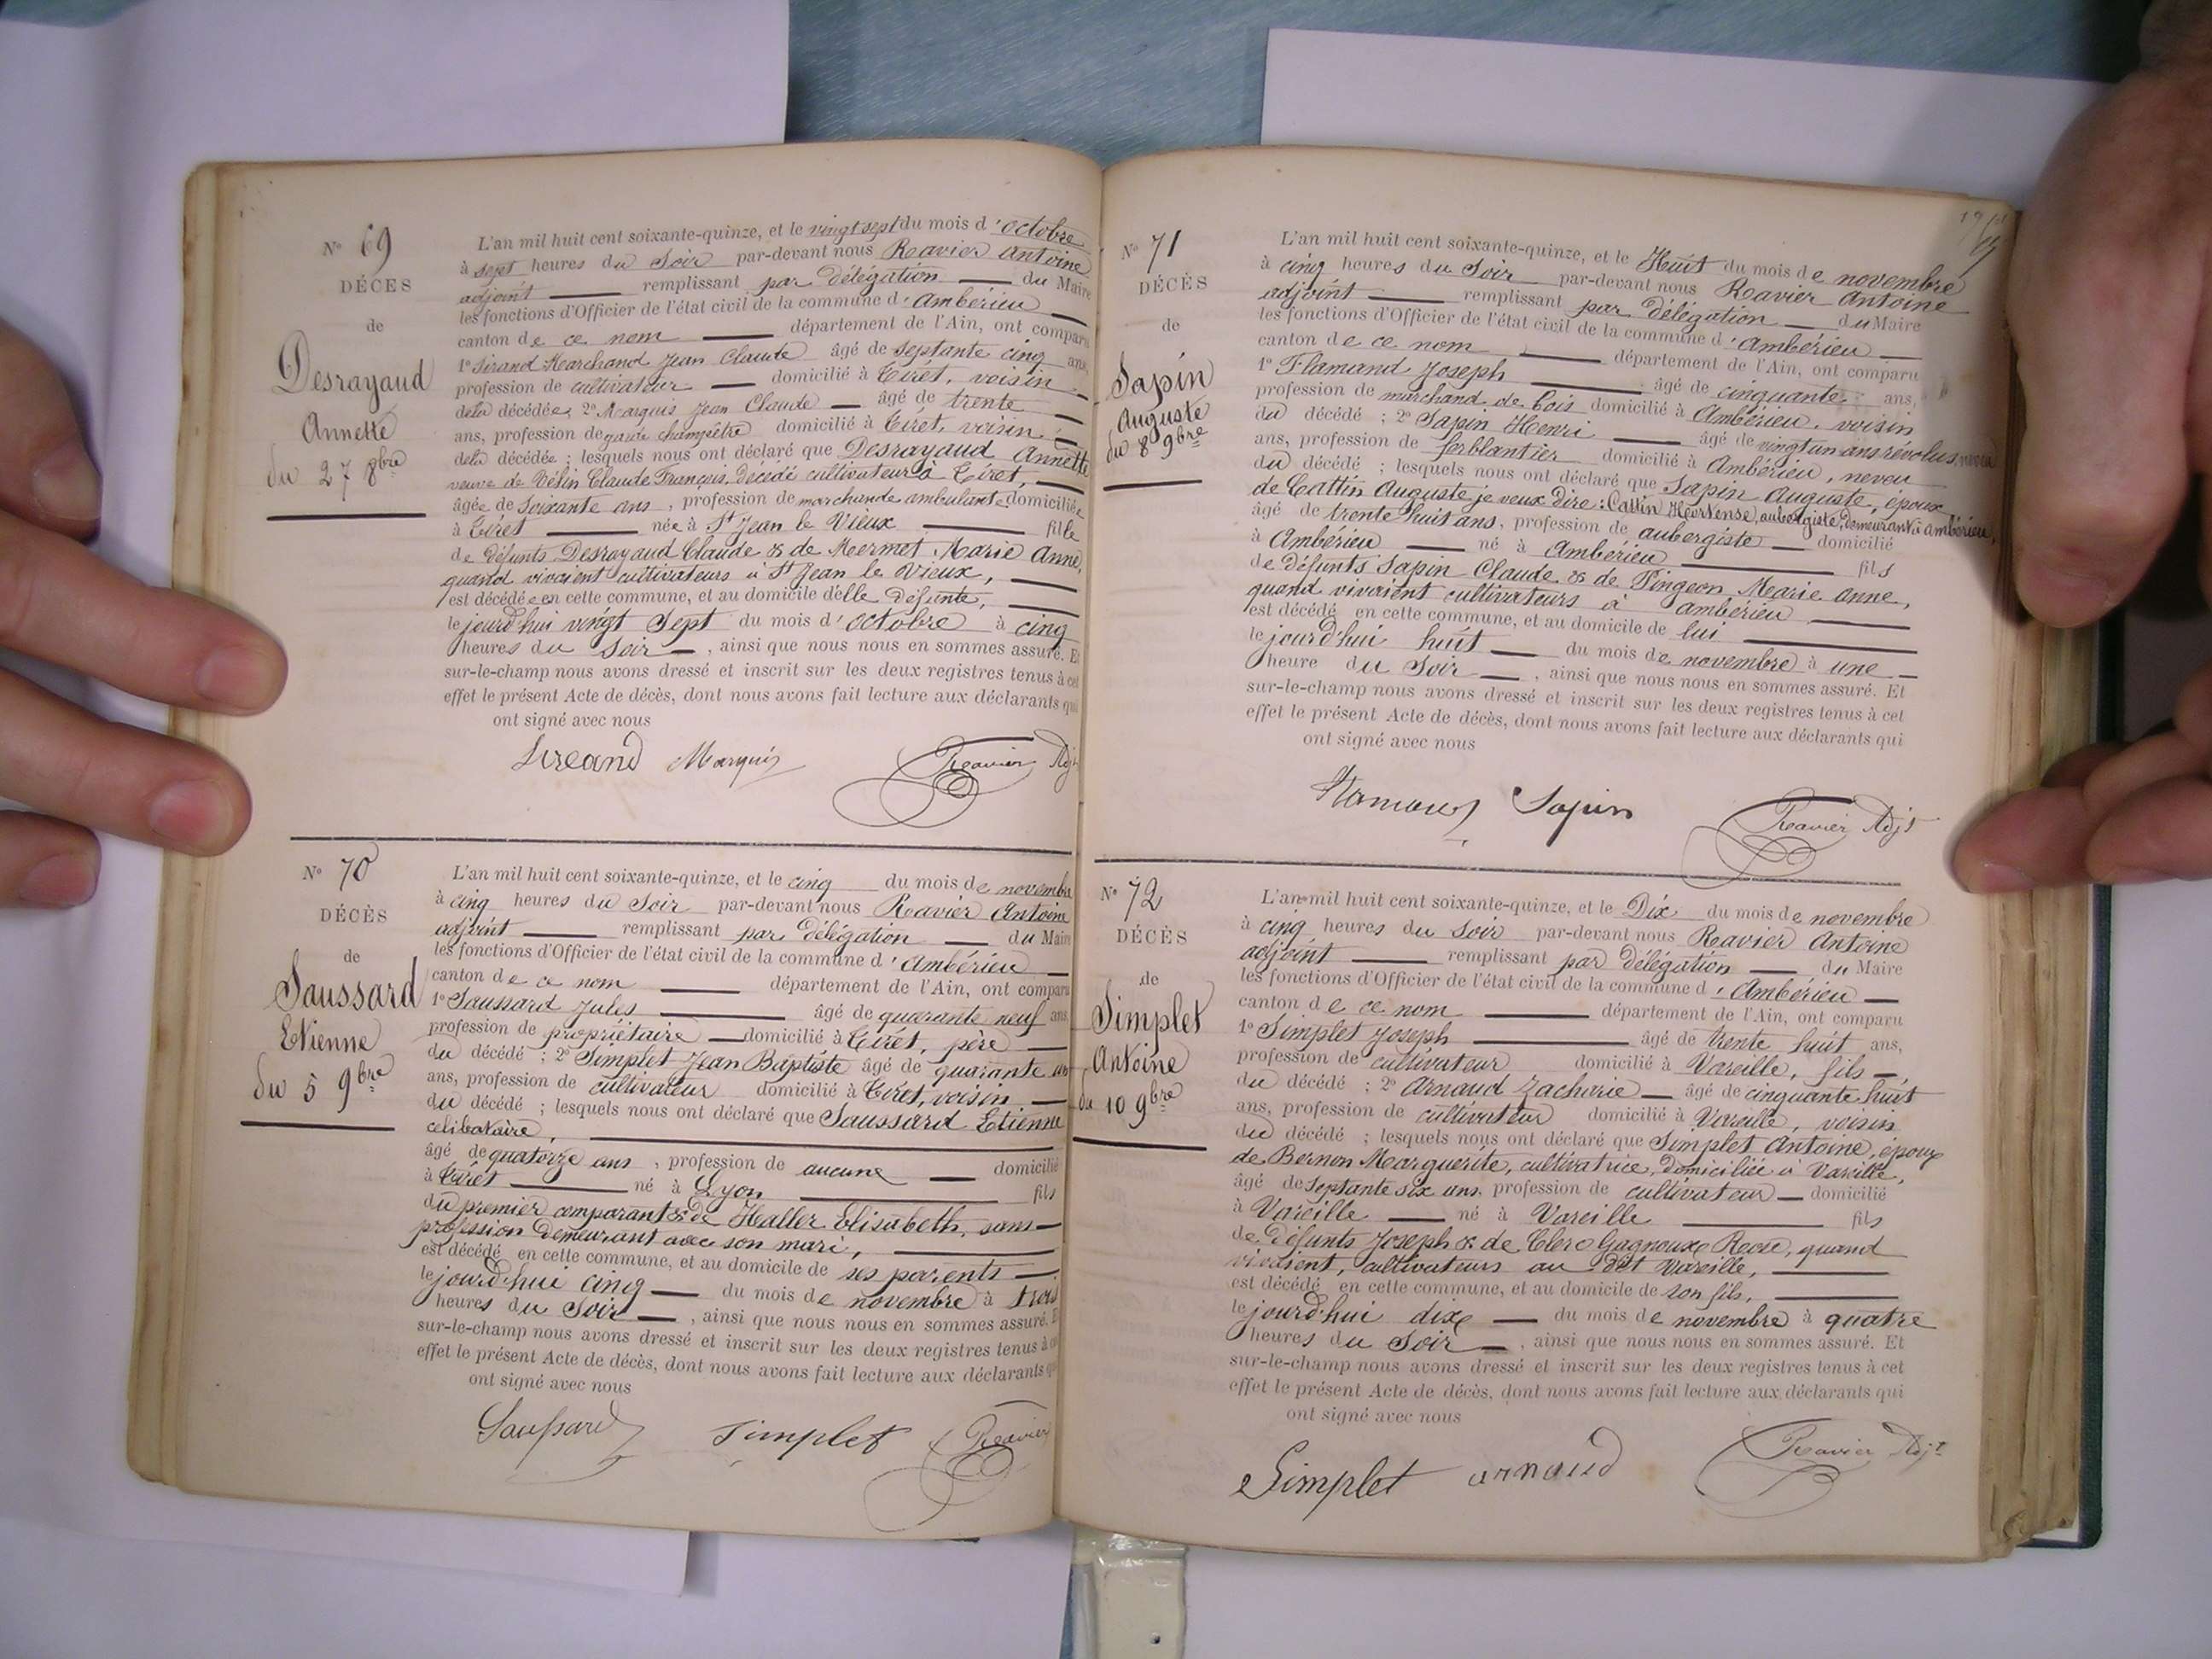 N° 69
DÉCÈS
de
Desrayaud
Annette
du 27 8bre
L'an mil huit cent soixante-quinze, et le vingt sept du mois d'octobre
à sept heures du Soir par-devant nous Ravier Antoine
adjoint remplissant par délégation du Maire
les fonctions d'Officier de l'état civil de la commune d'Ambérieu
canton de ce nom département de l'Ain, ont comparu
1° Sirand Marchand Jean Claude âgé de septante cinq ans,
profession de cultivateur domicilié à Tiret, voisin
dela décédée; 2° Marquis Jean Claude âgé de trente
ans, profession de garde champêtre domicilié à Tiret, voisin
dela décédée ; lesquels nous ont déclaré que Desrayaud Annette
veuve de Vélin Claude François, décédé cultivateur à Tiret,
âgée de Soixante ans, profession de marchande ambulante domiciliée
à Tiret née à St Jean le Vieux fille
de défunts Desrayaud Claude & de Mermet Marie Anne,
quand vivaient cultivateurs à St Jean le Vieux,
est décédée en cette commune, et au domicile d'elle défunte,
lejourd'hui vingt Sept du mois d'octobre à cinq
heures du Soir , ainsi que nous nous en sommes assuré. Et
sur-le-champ nous avons dressé et inscrit sur les deux registres tenus à cet
effet le présent Acte de décès, dont nous avons fait lecture aux déclarants qui
ont signé avec nous
Sireand Marquis Ravier Adjt
N° 70
DÉCÈS
de
Saussard
Etienne
du 5 9bre
L'an mil huit cent soixante-quinze, et le cinq du mois de novembre
à cinq heures du Soir par-devant nous Ravier Antoine
adjoint remplissant par délégation du Maire
les fonctions d'Officier de l'état civil de la commune d'Ambérieu
canton de ce nom département de l'Ain, ont comparu
1° Saussard Jules âgé de quarante neuf ans,
profession de propriétaire domicilié à Tiret, père
du décédé ; 2° Simplet Jean Baptiste âgé de quarante un
ans, profession de cultivateur domicilié à Tiret, voisin
du décédé ; lesquels nous ont déclaré que Saussard Etienne
célibataire,
âgé de quatorze ans, profession de aucune domicilié
à Tiret né à Lyon fils
du premier comparant & de Haller Elisabeth, sans
profession demeurant avec son mari,
est décédé en cette commune, et au domicile de ses parents
lejourd'hui cinq du mois de novembre à trois
heures du Soir , ainsi que nous nous en sommes assuré. Et
sur-le-champ nous avons dressé et inscrit sur les deux registres tenus à cet
effet le présent Acte de décès, dont nous avons fait lecture aux déclarants qui
ont signé avec nous
Saussard Simplet Ravier
N° 71
DÉCÈS
de
Sapin
Auguste
du 8 9bre
L'an mil huit cent soixante-quinze, et le Huit du mois de novembre
à cinq heures du Soir par-devant nous Ravier Antoine
adjoint remplissant par délégation du Maire
les fonctions d'Officier de l'état civil de la commune d'Ambérieu
canton de ce nom département de l'Ain, ont comparu
1° Flamand Joseph âgé de cinquante ans,
profession de marchand de bois domicilié à Ambérieu, voisin
du décédé ; 2° Sapin Henri âgé de vingt un ans révolus, neveu
ans, profession de ferblantier domicilié à Ambérieu, neveu
du décédé ; lesquels nous ont déclaré que Sapin Auguste, époux
de Cattin Auguste, je veux dire : Cattin Hortense, aubergiste, demeurant à Ambérieu,
âgé de trente huit ans, profession de aubergiste domicilié
à Ambérieu né à Ambérieu fils
de défunts Sapin Claude & de Pingeon Marie Anne,
quand vivaient cultivateurs à Ambérieu
est décédé en cette commune, et au domicile de lui
lejourd'hui huit du mois de novembre à une
heure du Soir , ainsi que nous nous en sommes assuré. Et
sur-le-champ nous avons dressé et inscrit sur les deux registres tenus à cet
effet le présent Acte de décès, dont nous avons fait lecture aux déclarants qui
ont signé avec nous
Flamand Sapin Ravier Adjt
N° 72
DÉCÈS
de
Simplet
Antoine
du 10 9bre
L'an mil huit cent soixante-quinze, et le Dix du mois de novembre
à cinq heures du Soir par-devant nous Ravier Antoine
adjoint remplissant par délégation du Maire
les fonctions d'Officier de l'état civil de la commune d'Ambérieu
canton de ce nom département de l'Ain, ont comparu
1° Simplet Joseph âgé de trente huit ans,
profession de cultivateur domicilié à Vareille, fils
du décédé ; 2° Arnaud Zacharie âgé de cinquante huit
ans, profession de cultivateur domicilié à Vareille, voisin
du décédé ; lesquels nous ont déclaré que Simplet Antoine, époux
de Bernon Marguerite, cultivatrice, domiciliée à Vareille,
âgé de septante six ans, profession de cultivateur domicilié
à Vareille né à Vareille fils
de défunts Joseph & de Clerc Gagnoux Rose, quand
vivaient, cultivateurs au dit Vareille,
est décédé en cette commune, et au domicile de son fils,
lejourd'hui dix du mois de novembre à quatre
heures du Soir , ainsi que nous nous en sommes assuré. Et
sur-le-champ nous avons dressé et inscrit sur les deux registres tenus à cet
effet le présent Acte de décès, dont nous avons fait lecture aux déclarants qui
ont signé avec nous
Simplet arnaud Ravier Adjt